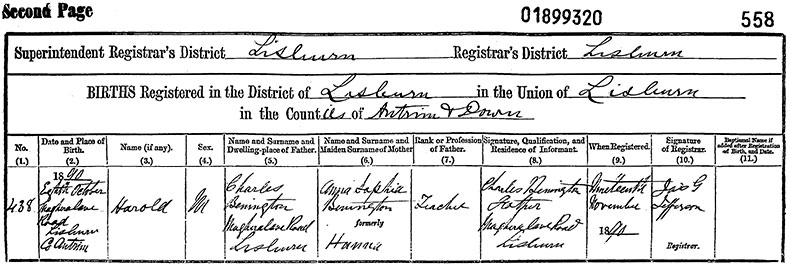 Second Page
01899320
558
Superintendent Registrar's District Lisburn Registrar's District Lisburn
BIRTHS Registered in the District of Lisburn in the Union of Lisburn
in the Counties of Antrim & Down
No.
(1.)
Date and Place of
Birth.
(2.)
Name (if any).
(3.)
Sex.
(4.)
Name and Surname and
Dwelling-place of Father.
(5.)
Name and Surname and
Maiden Surname of Mother
(6.)
Rank or Profession
of Father.
(7.)
Signature, Qualification, and
Residence of Informant.
(8.)
When Registered.
(9.)
Signature
of Registrar.
(10.)
Baptismal Name if
added after Registration
of Birth, and Date.
(11.)
438
1890
Eighth October
Magheralave
Road
Lisburn
Co Antrim
Harold
M
Charles
Benington
Magheralave Road
Lisburn
Anna Sophia
Benington
formerly
Hannia
Teacher
Charles Benington
Father
Magheralave Road
Lisburn
Nineteenth
November
1890
Jas G
Jefferson
Registrar.